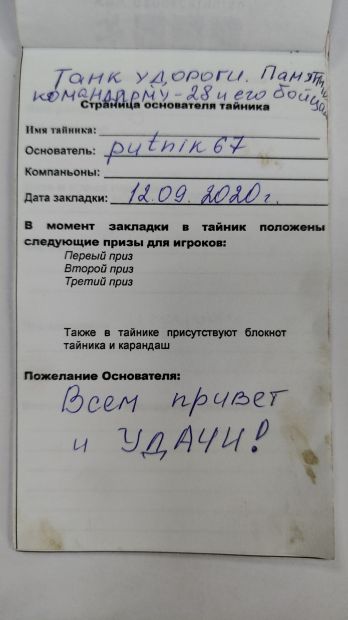 Танк у дороги. Памятник
командарму-28 и его бойцам
Страница основателя тайника
Имя тайника:
Основатель: putnik67
Компаньоны:
Дата закладки: 12.09.2020г.
В момент закладки в тайник положены
следующие призы для игроков:
Первый приз
Второй приз
Третий приз
Также в тайнике присутствуют блокнот
тайника и карандаш
Пожелание Основателя:
Всем привет
и УДАЧИ!